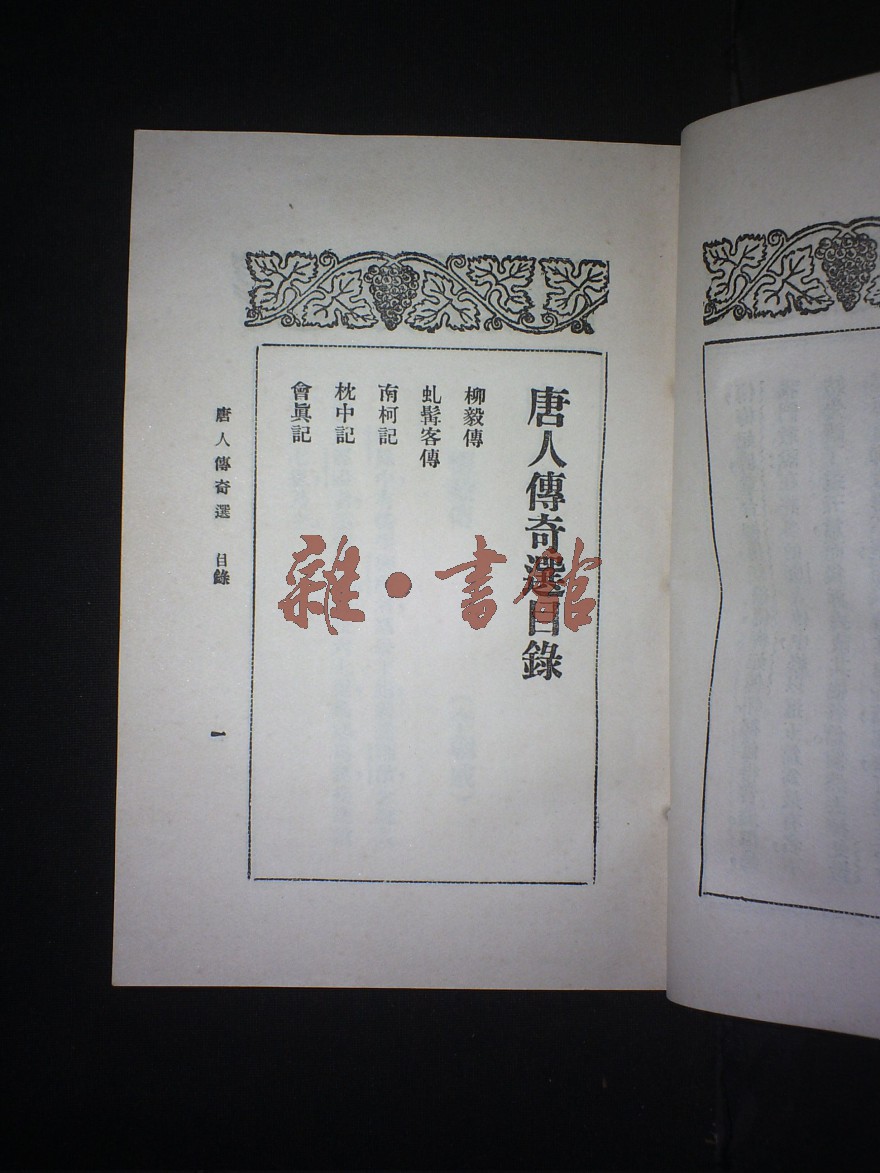 唐人傳奇選目錄
柳毅傳
虬髯客傳
南柯記
枕中記
會眞記
唐人傳奇選 目錄
一
雜·書館